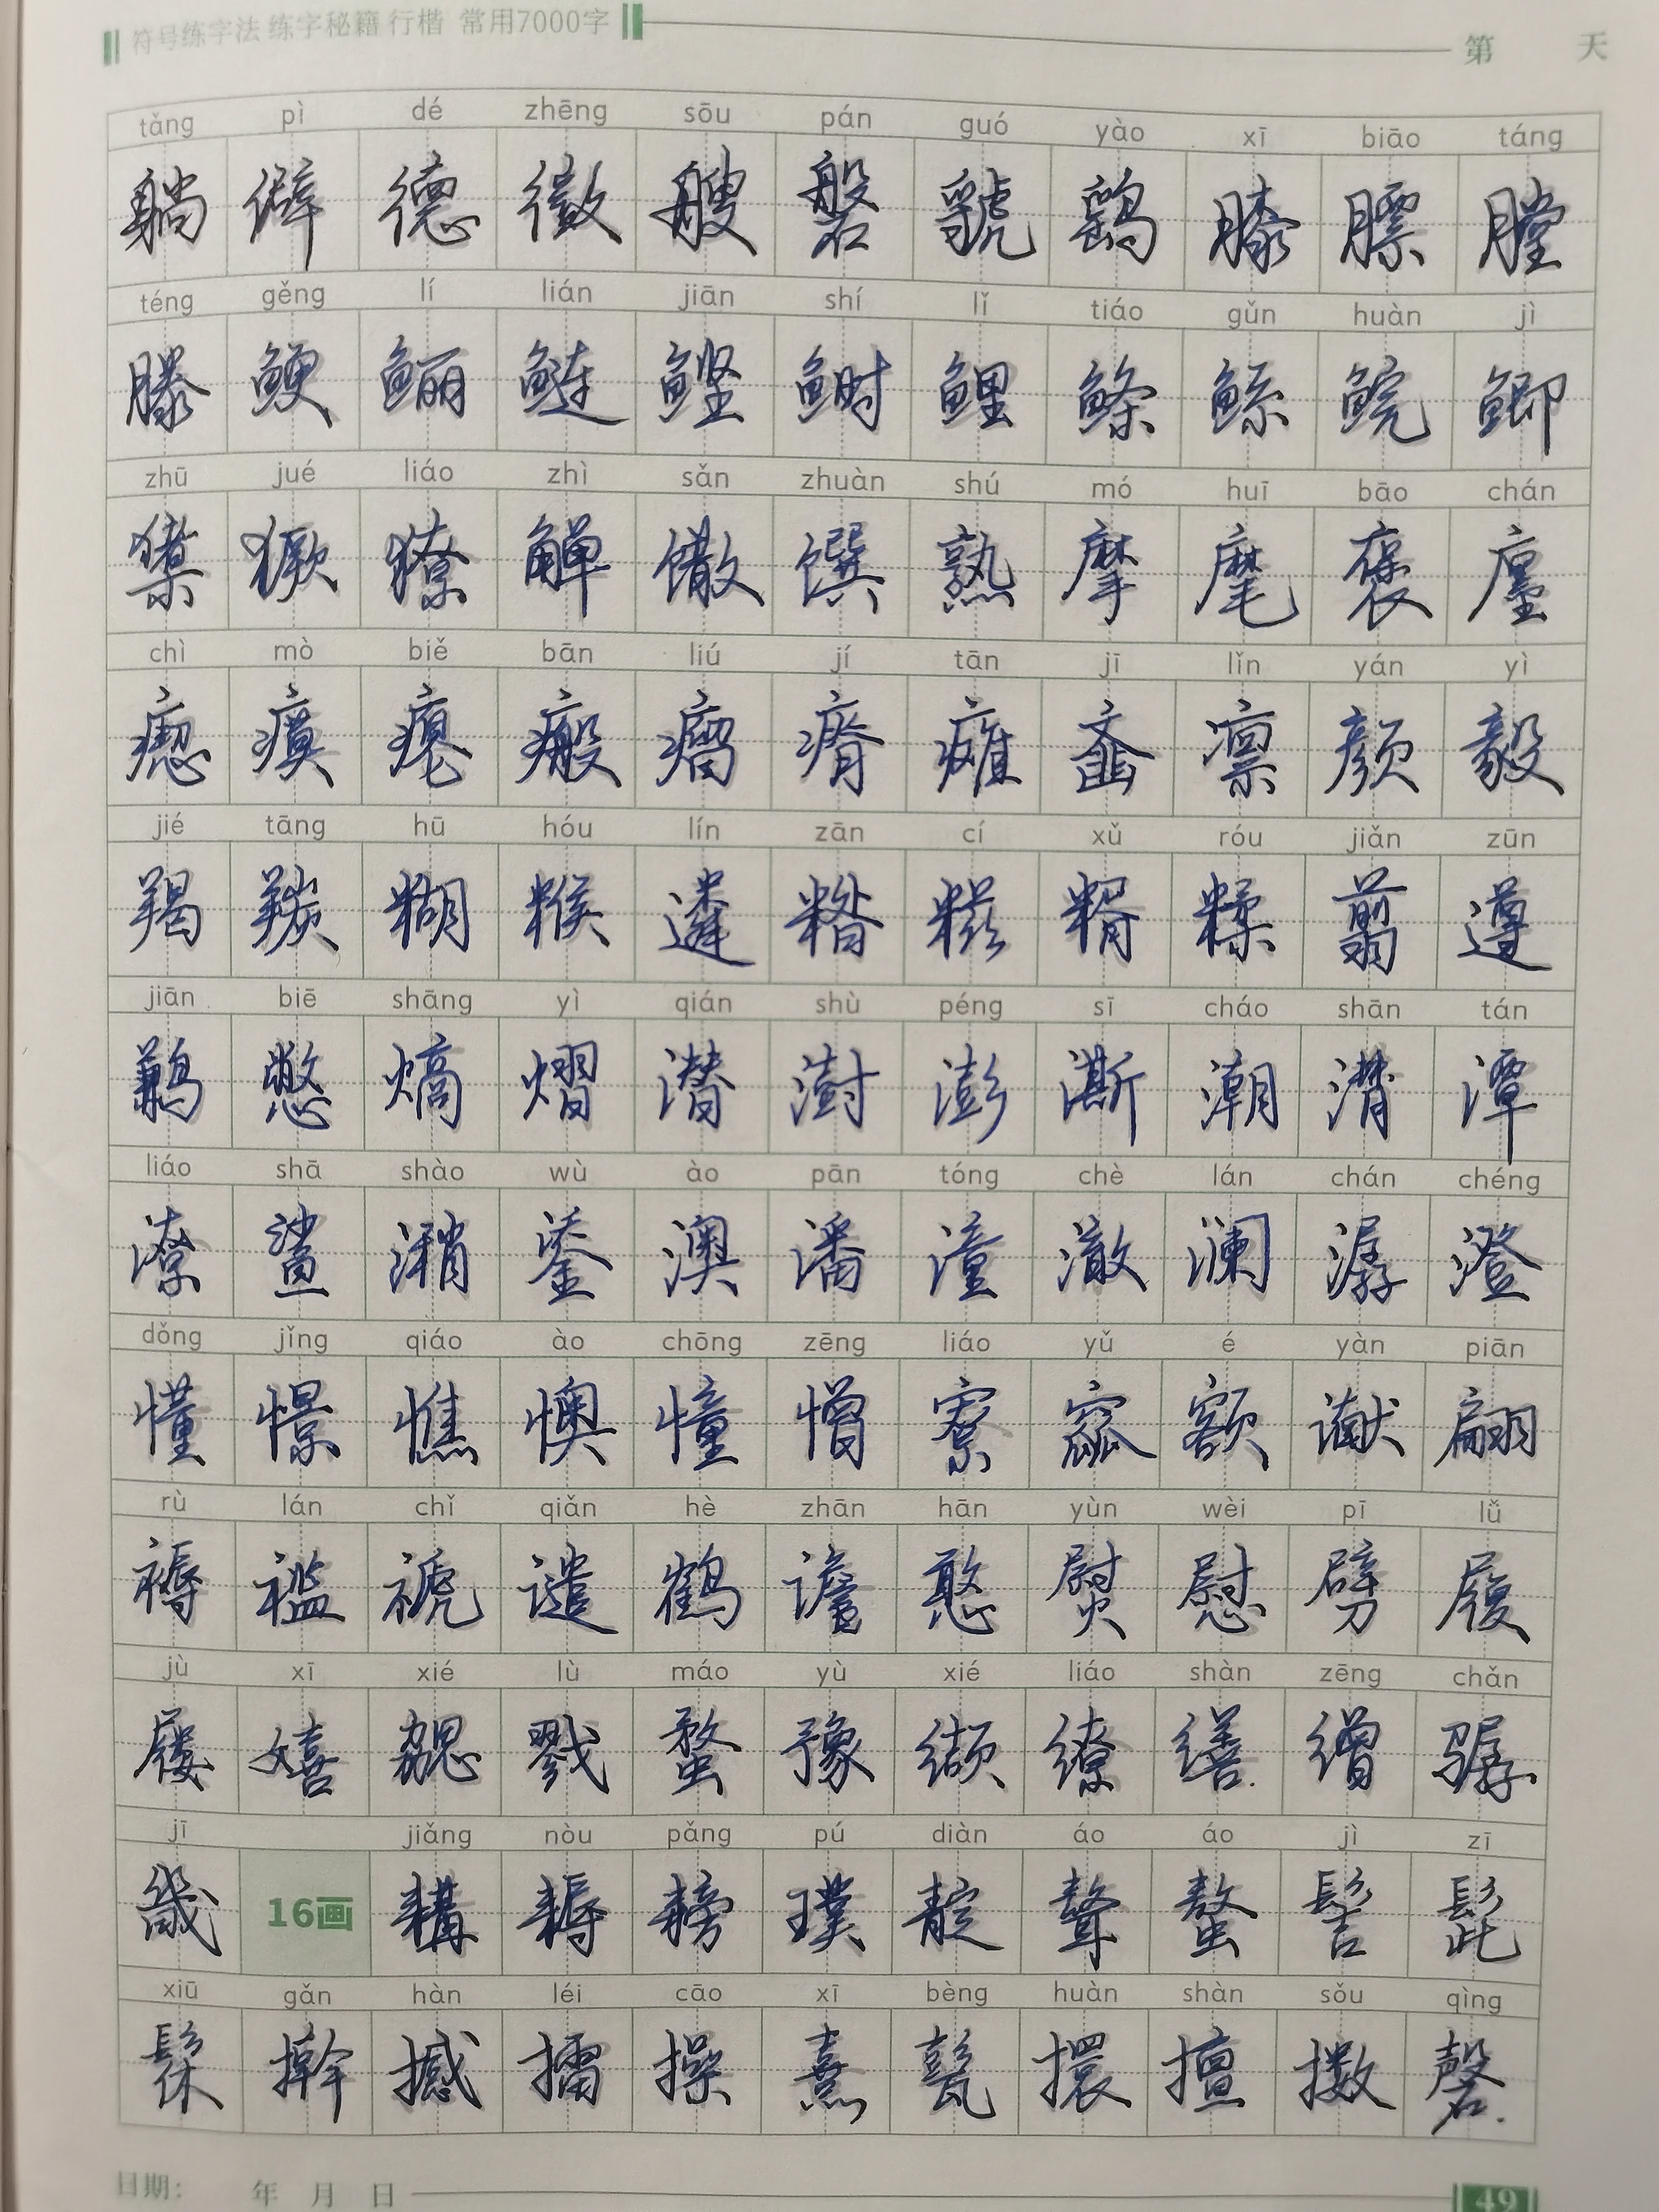 符号练字法 练字秘籍 行楷 常用7000字 第 天
tǎng pì dé zhēng sōu pán guó yào xī biāo táng
躺 僻 德 徵 艘 磐 虢 鹞 膝 膘 膛
téng gěng lí lián jiān shí lǐ tiáo gǔn huàn jì
滕 鲠 鲡 鲢 鲣 鲥 鲤 鲦 鲧 鲩 鲫
zhū jué liáo zhì sǎn zhuàn shú mó huī bāo chán
橥 獗 獠 觯 馓 馔 熟 摩 麾 褒 廛
chì mò biě bān liú jí tān jī lǐn yán yì
瘛 瘼 瘪 瘢 瘤 瘠 瘫 齑 凛 颜 毅
jié tāng hū hóu lín zān cí xǔ róu jiǎn zūn
羯 羰 糊 糇 遴 糌 糍 糈 糅 翦 遵
jiān biē shāng yì qián shù péng sī cháo shān tán
鹣 憋 熵 熠 潜 澍 澎 澌 潮 潸 潭
liáo shā shào wù ào pān tóng chè lán chán chéng
潦 鲨 潲 鋈 澳 潘 潼 澈 澜 潺 澄
dǒng jǐng qiáo ào chōng zēng liáo yǔ é yàn piān
懂 憬 憔 懊 憧 憎 寮 窳 额 谳 翩
rù lán chǐ qiǎn hè zhān hān yùn wèi pī lǚ
褥 褴 褫 谴 鹤 谵 憨 熨 慰 劈 履
jù xī xié lù máo yù xié liáo shàn zēng chǎn
屦 嬉 勰 戮 蝥 豫 缬 缭 缮 缯 骣
jī jiǎng nòu pǎng pú diàn áo áo jì zī
畿 16画 耩 耨 耪 璞 靛 聱 螯 髻 髭
xiū gǎn hàn léi cāo xī bèng huàn shàn sǒu qìng
髹 擀 撼 擂 操 熹 甏 擐 擅 擞 磬
日期: 年 月 日 49